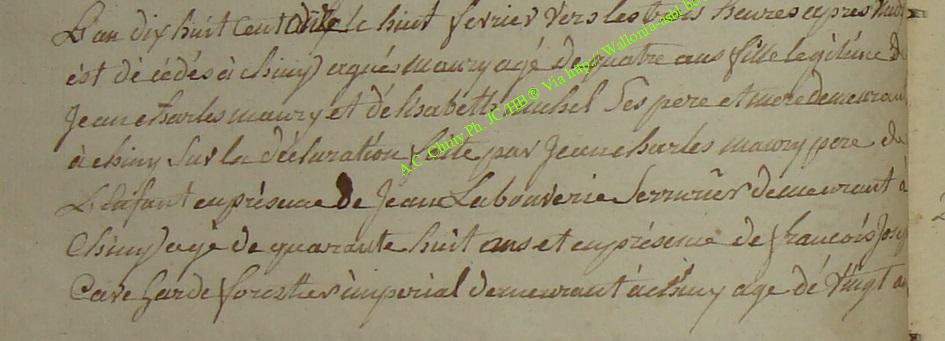 L'an dix huit cent onze le huit fevrier vers les trois heures apres midi
est décédés à chiny agnés maury agé de quatre ans fille legitime de
Jean charles maury et d'élisabeth michel Ses pere et mere demeurant
à chiny Sur la déclaration faite par Jean charles maury pere de
L'enfant en présence de Jean Labouverie Serrurier demeurant à
Chiny agé de quarante huit ans et en présence de francois Jos
Care Garde forestier imperial demeurant à chiny age dé Vingt
A.C. Chiny Ph. JC/HB © Via http:// Wallonia-asbl.be